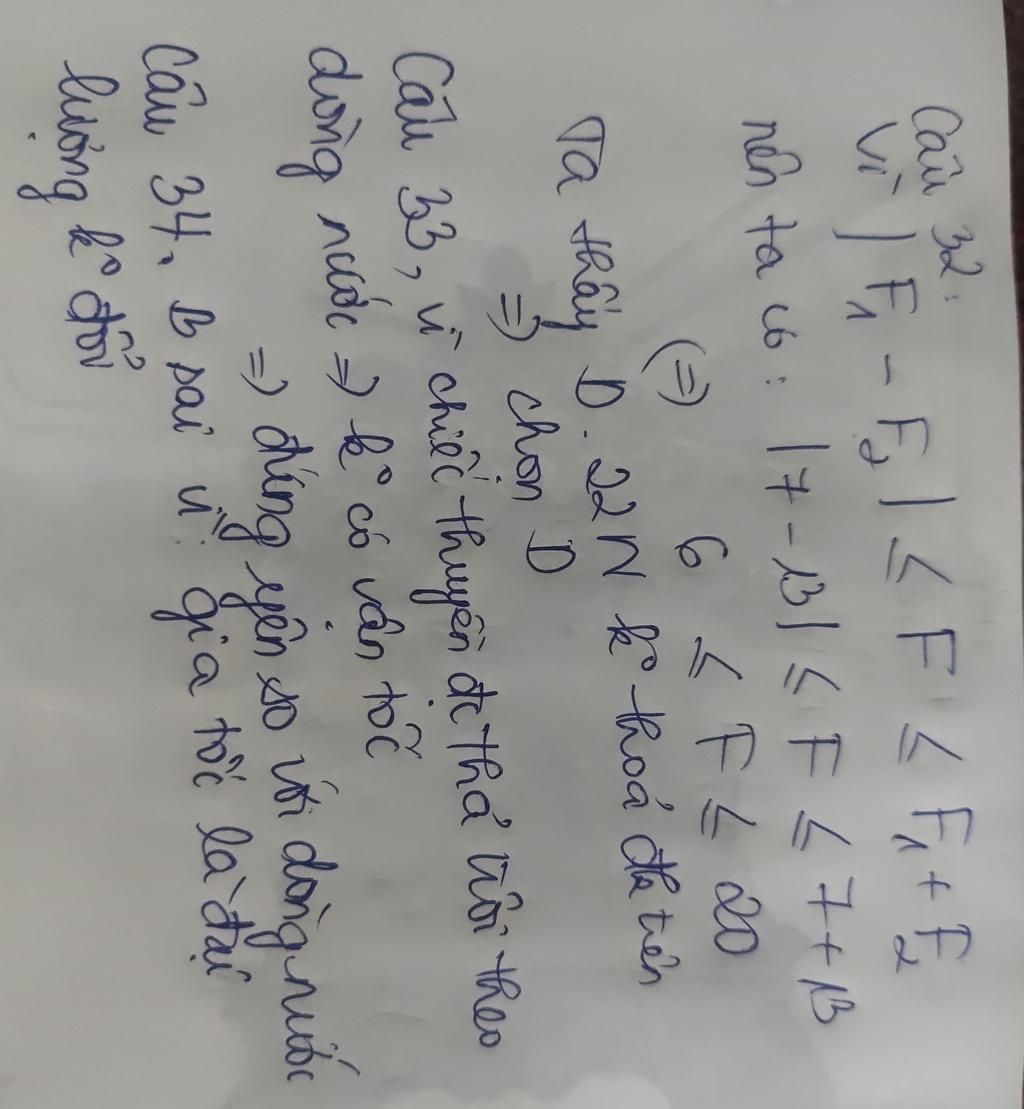 Câu 32:
Vì |F₁ - F₂| ≤ F ≤ F₁ + F₂
nên ta có: |7 - 13| ≤ F ≤ 7 + 13
(=) 6 ≤ F ≤ 20
Ta thấy D. 22N k° thoả đk trên
=) chọn D
Câu 33, vì chiếc thuyền đc thả trôi theo
dòng nước =) k° có vận tốc
=) đứng yên so với dòng nước
Câu 34. B sai vì gia tốc là đại
lượng k° đổi